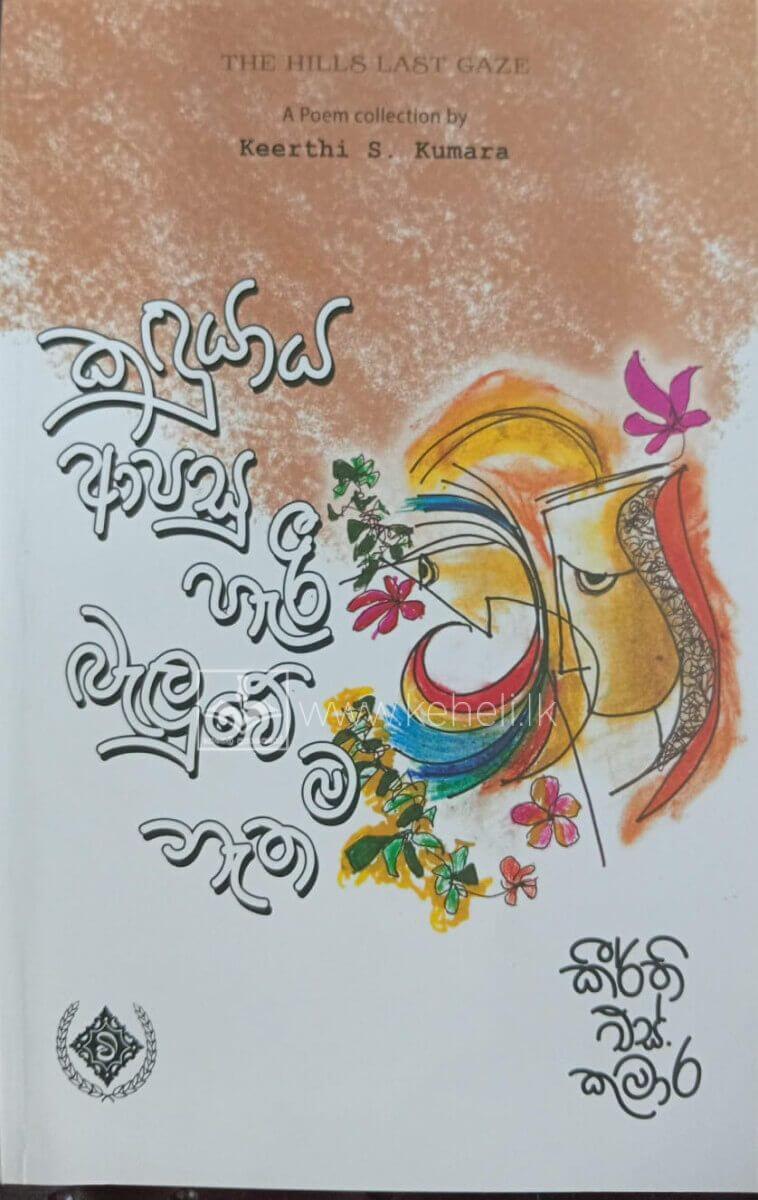 THE HILLS LAST GAZE
A Poem collection by
Keerthi S. Kumara
කඳුයාය
ආපසු
හැරී
බැලුවේ
ම
නැත
www.keheli.lk
කීර්ති
එස්.
කුමාර